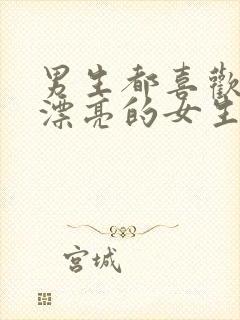 男生都喜歡
漂亮的女生
宮城